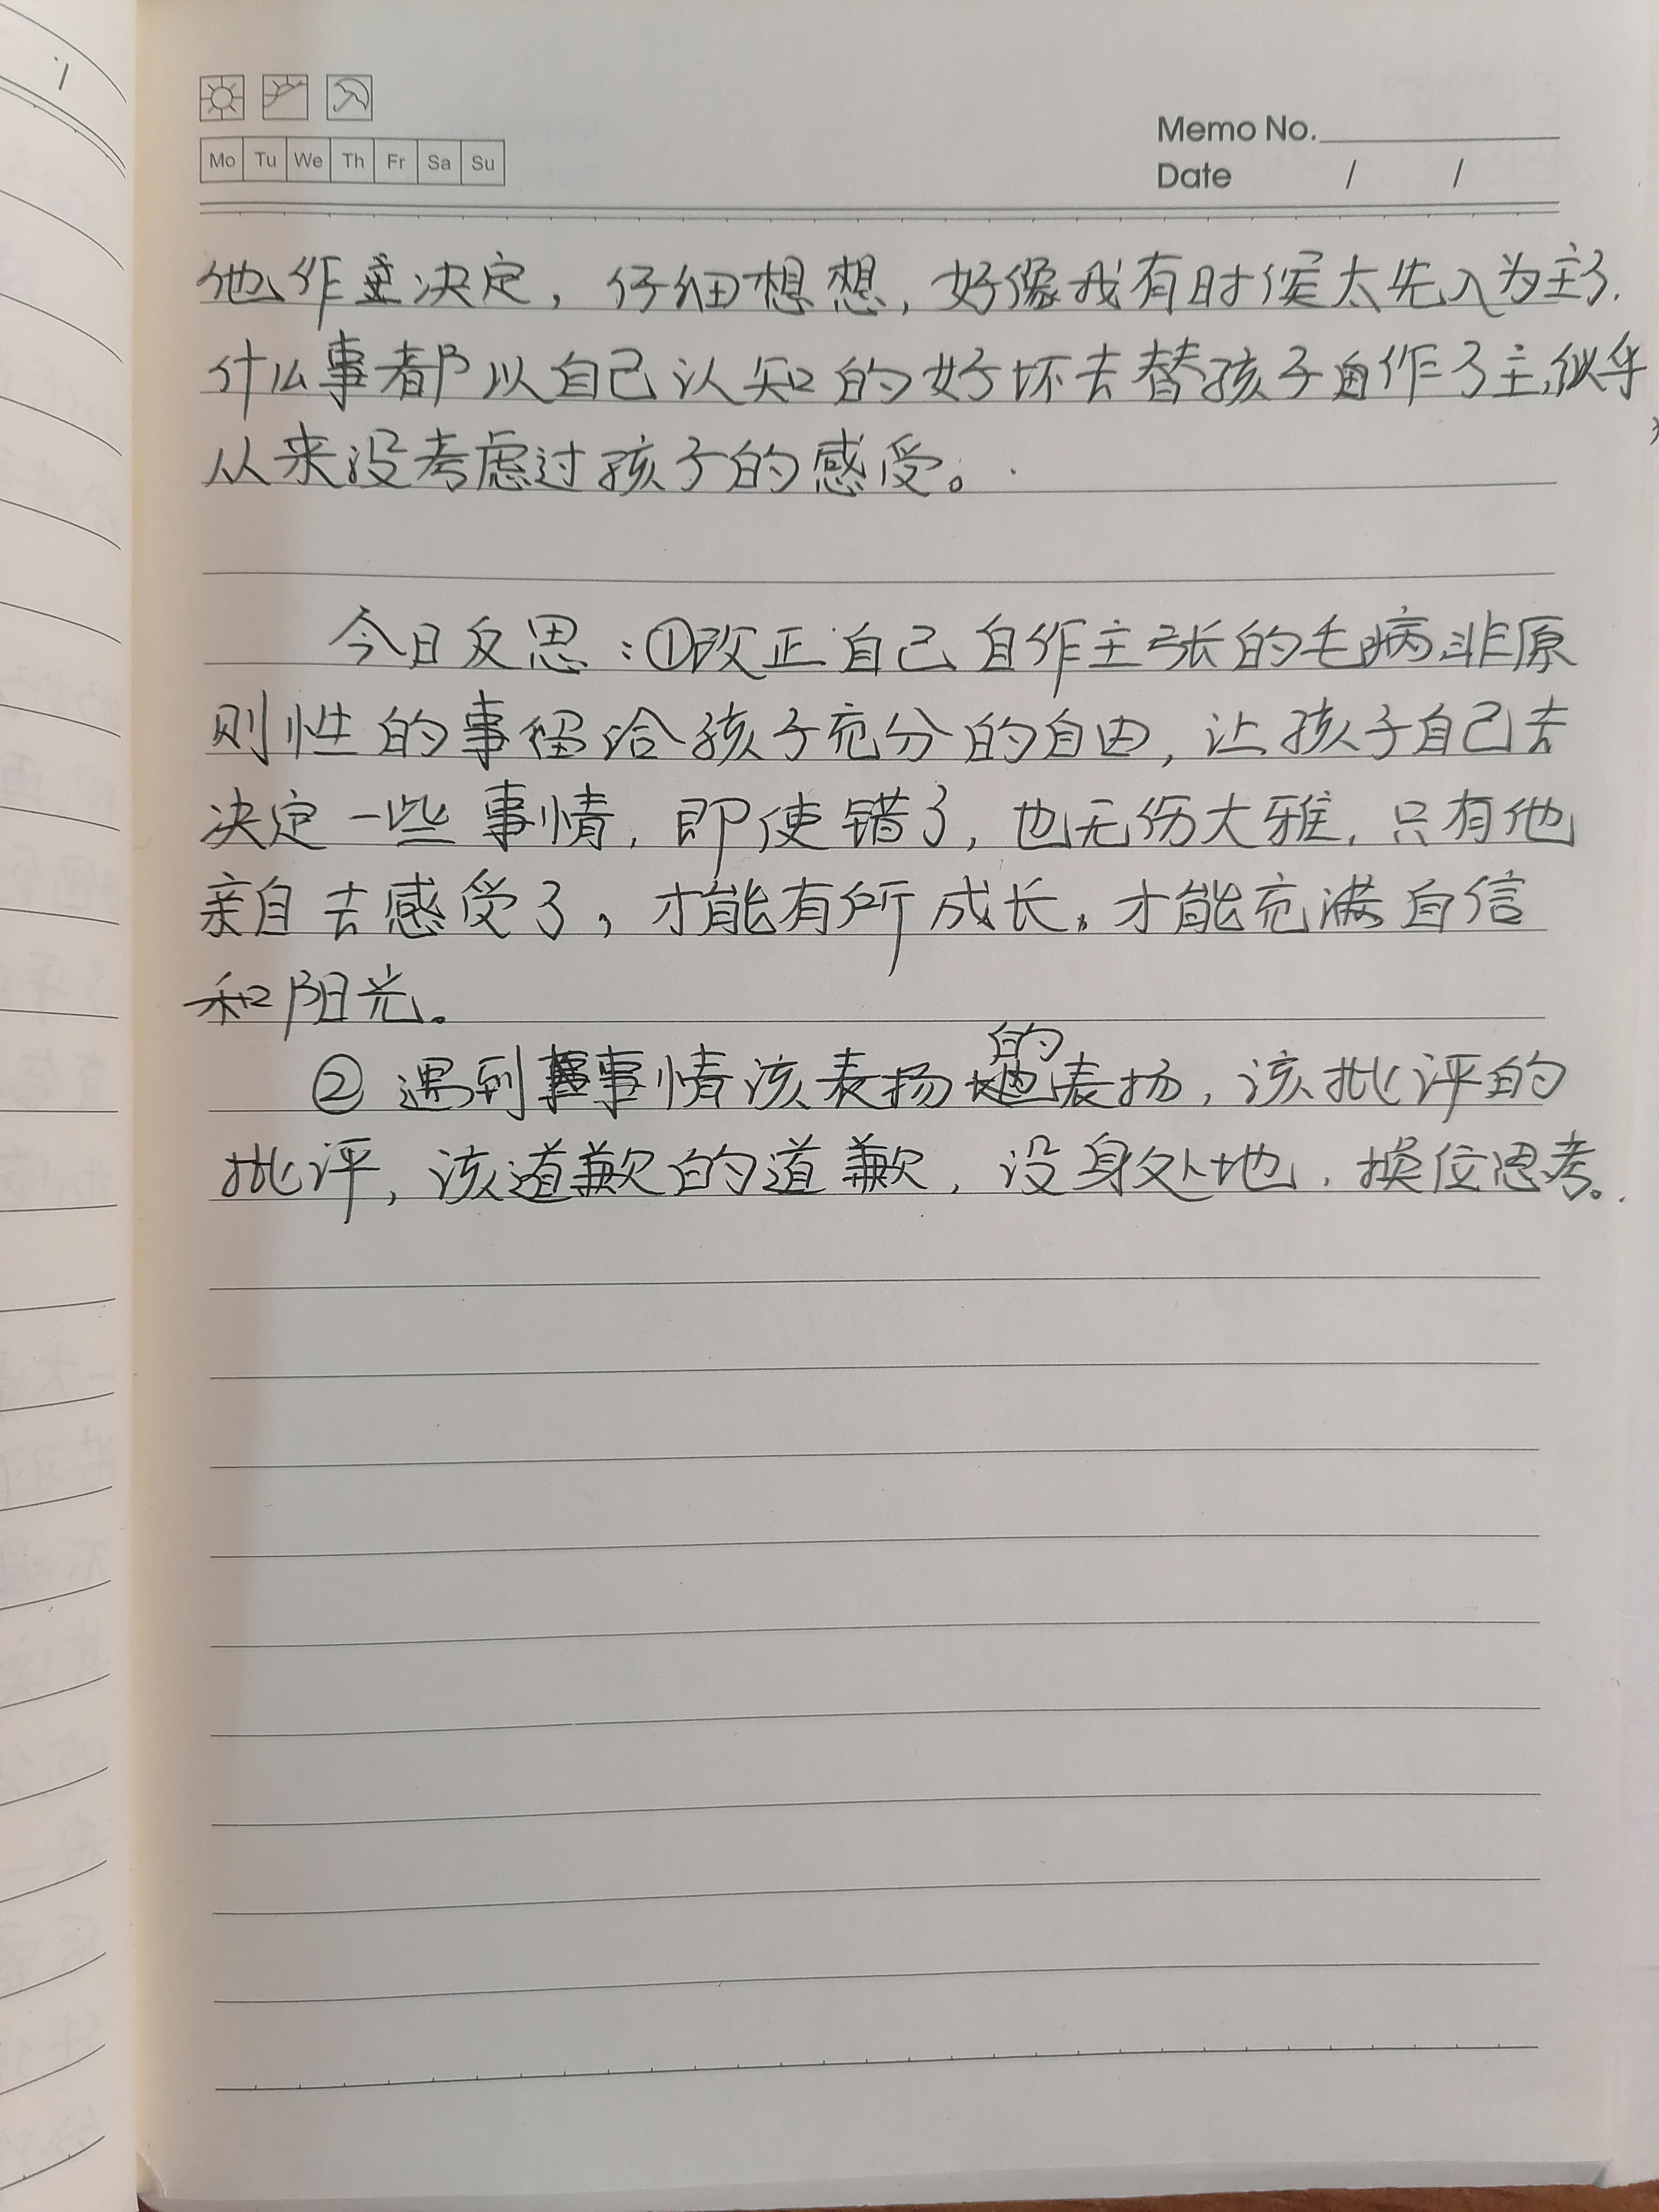 Mo Tu We Th Fr Sa Su
Memo No.
Date / /
他作主决定，仔细想想，好像我有时候太先入为主了.
什么事都以自己认知的好坏去替孩子自作了主,似乎
从来没考虑过孩子的感受。
今日反思：①改正自己自作主张的毛病,非原
则性的事给孩子充分的自由，让孩子自己去
决定一些事情，即使错了，也无伤大雅，只有他
亲自去感受了，才能有所成长，才能充满自信
和阳光。
的
②遇到事情该表扬表扬，该批评的
批评，该道歉的道歉，设身处地，换位思考。